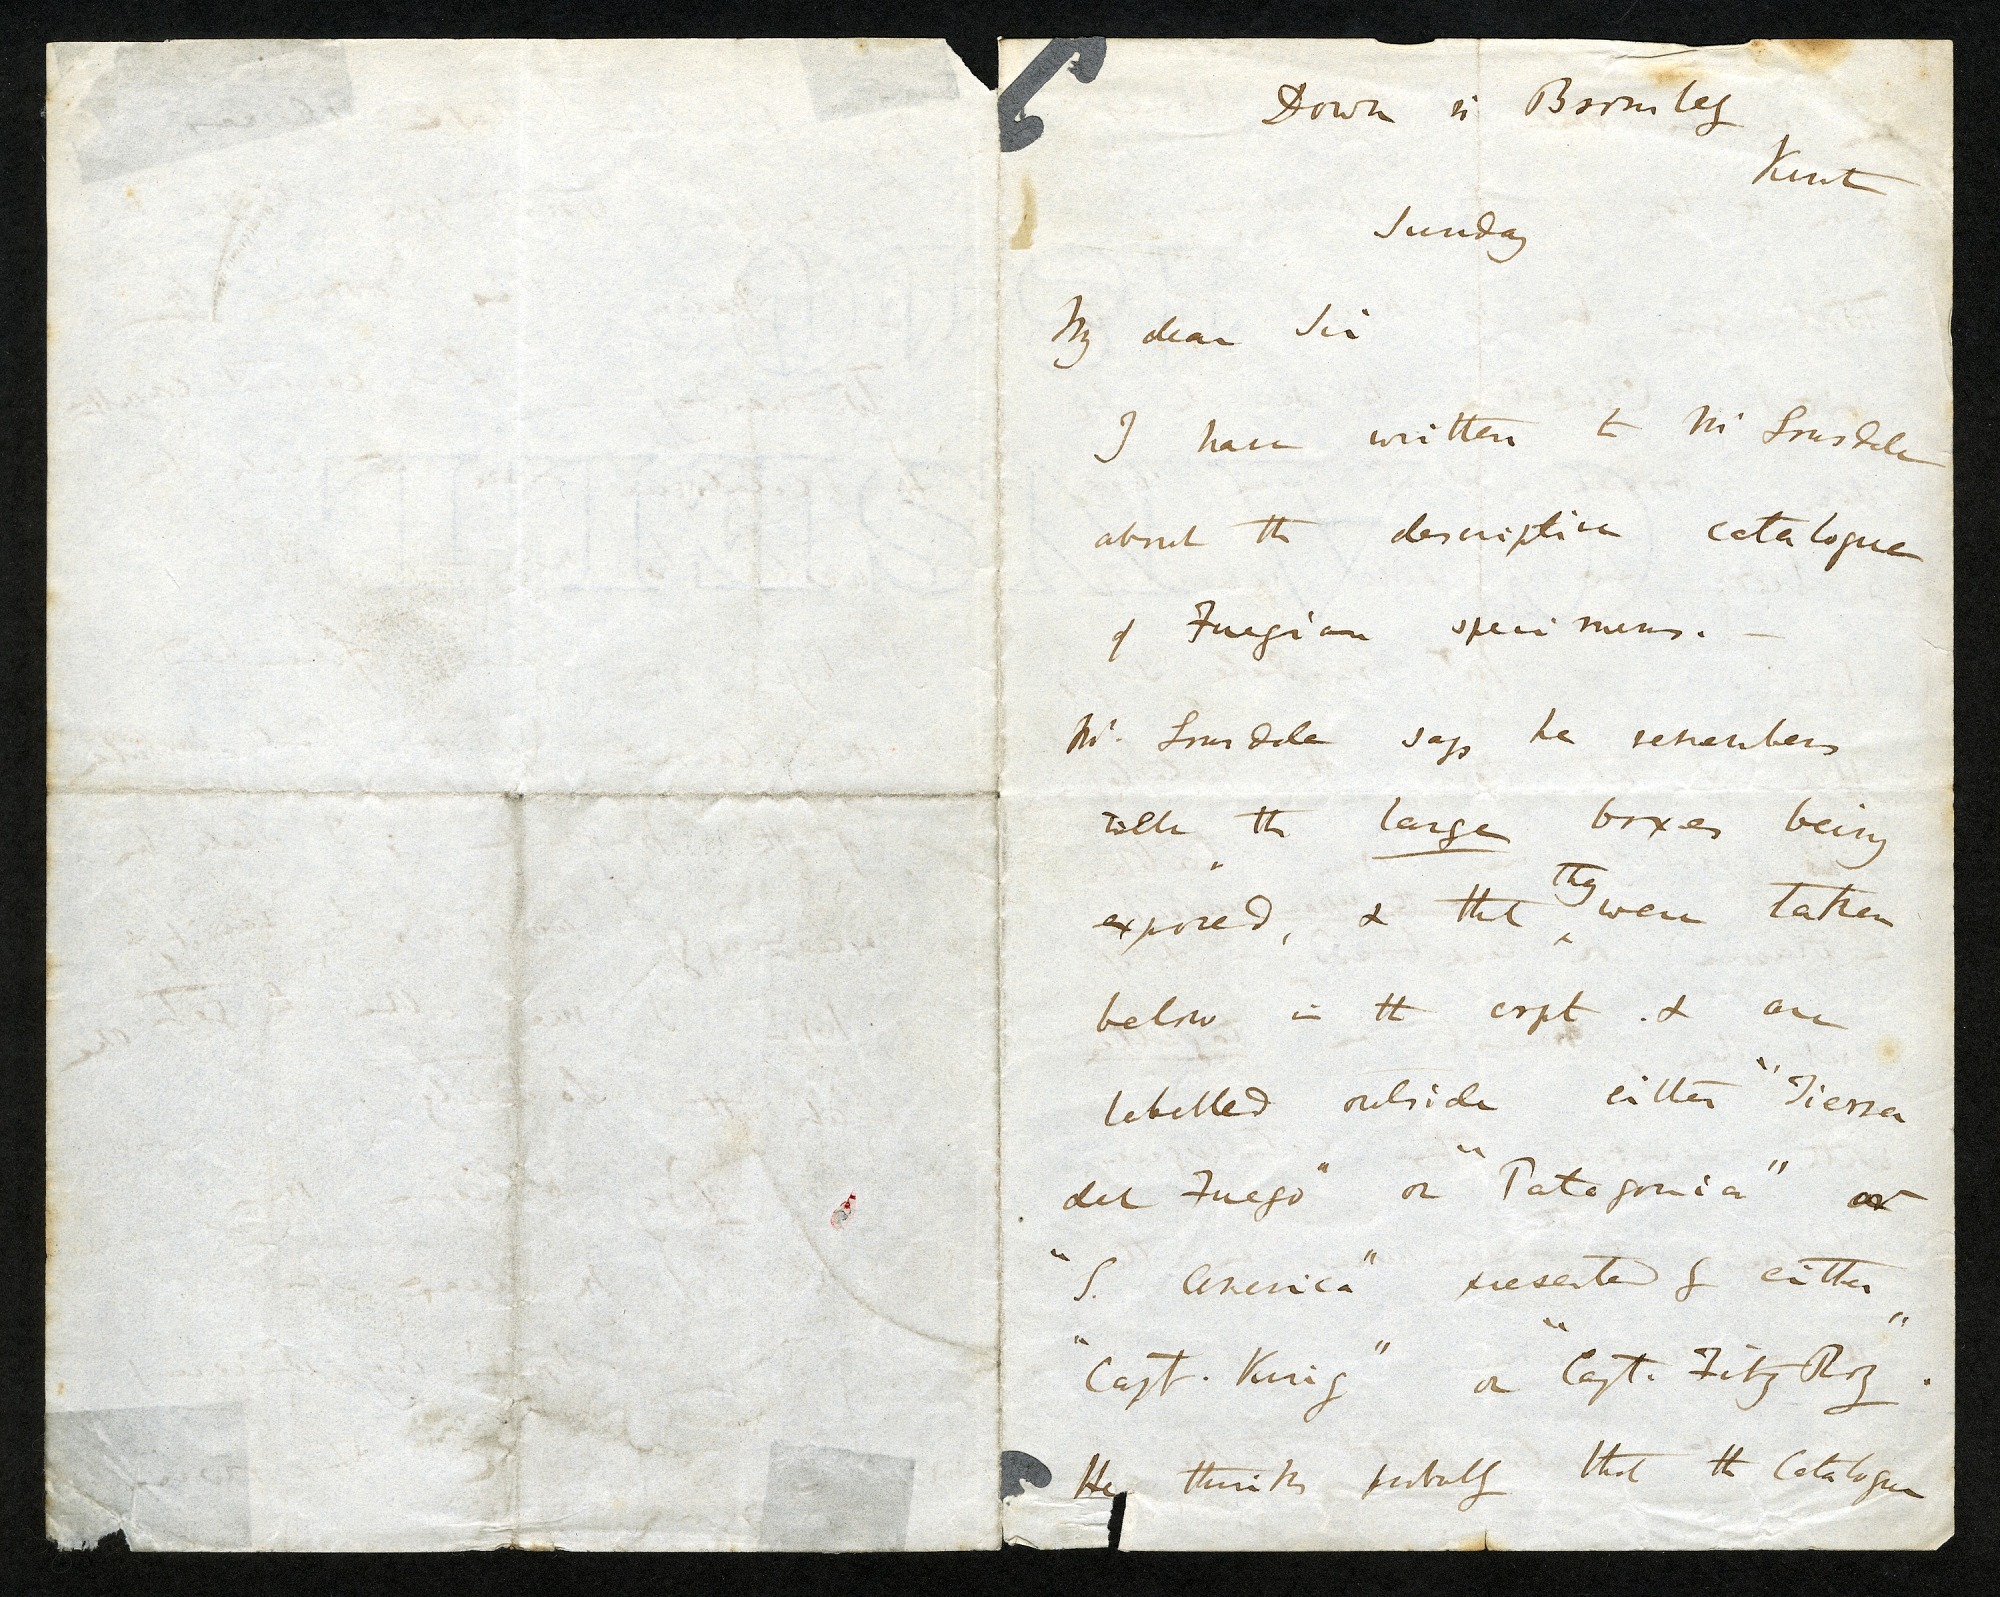 Down nr Bromley
Kent
Sunday
My dear Sir
I have written to Mr Lonsdale
about the descriptive catalogue
of Fuegian specimens. —
Mr. Lonsdale says he remembers
well the large boxes being
exposed, & that they were taken
below in the crpt. & are
labelled outside either "Tierra
del Fuego" or "Patagonia" or
"S. America" presented by either
"Capt. King" or "Capt. FitzRoy".
He thinks probably that the Catalogue